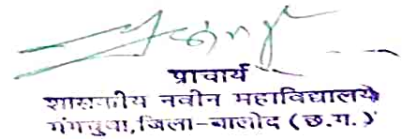 प्राचार्य
शासकीय नवीन महाविद्यालय
जिला-बालोद (छ.ग.)